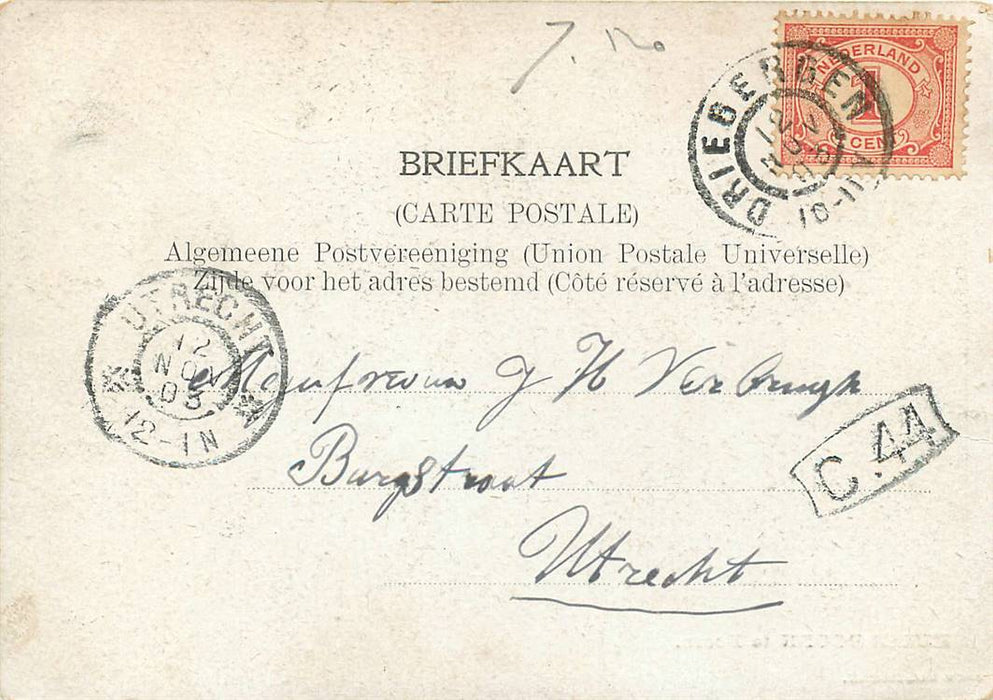 7.120
NEDERLAND
1
CENT
DRIEBERGEN
12 NOV 03
10-11V
BRIEFKAART
(CARTE POSTALE)
Algemeene Postvereeniging (Union Postale Universelle)
Zijde voor het adres bestemd (Côté réservé à l'adresse)
UTRECHT
12
NOV
03
12-1N
Mejufvrouw J H Verbrugh
Burgstraat
Utrecht
C.44